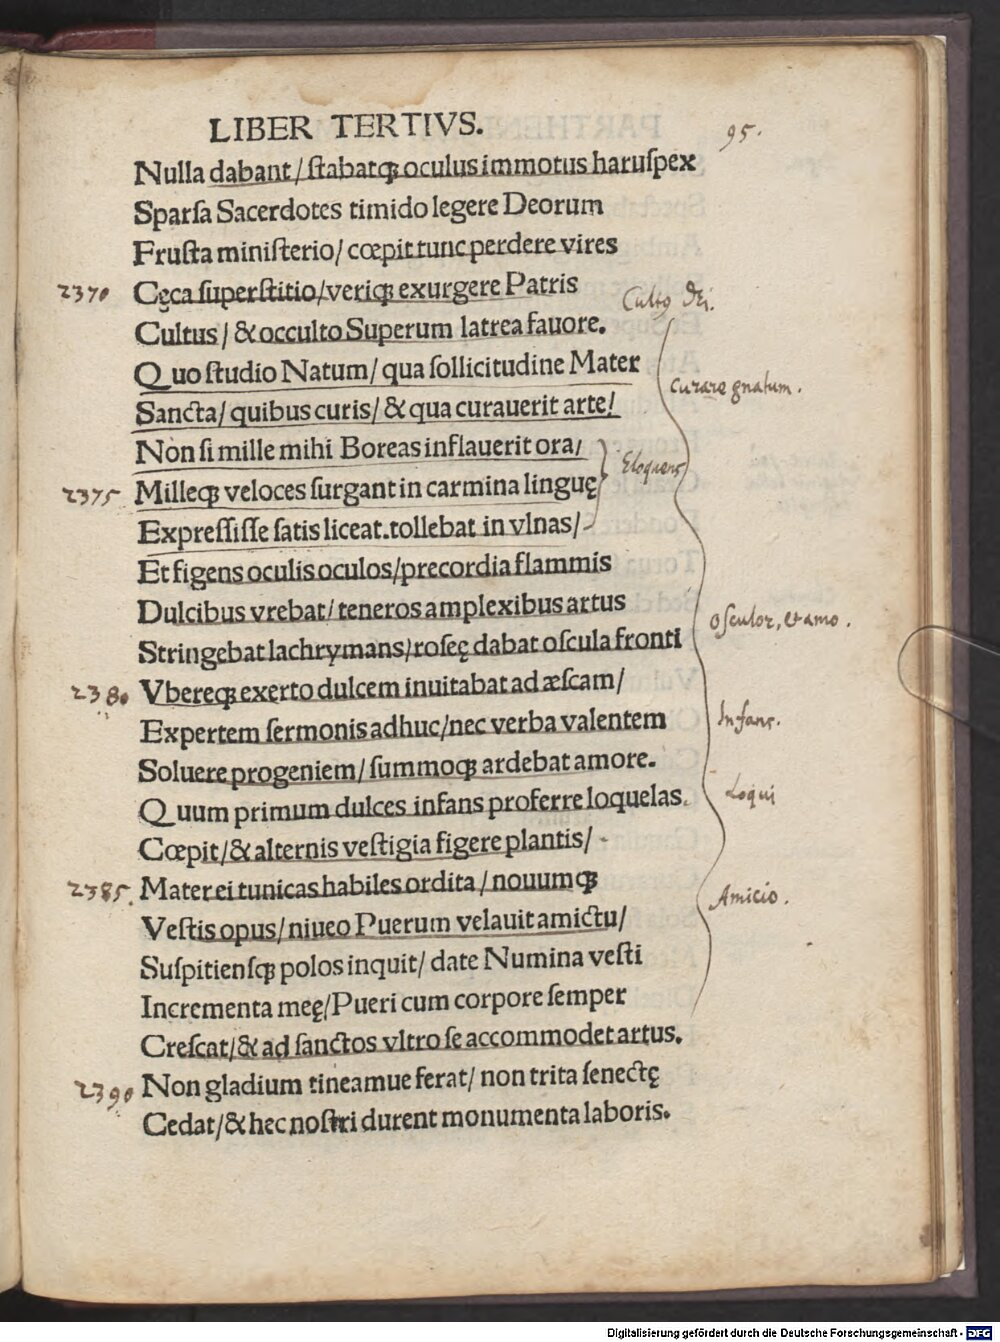 LIBER TERTIVS.
95.
Nulla dabant/ ſtabatqꝫ oculus immotus haruſpex
Sparſa Sacerdotes timido legere Deorum
Fruſta miniſterio/ cœpit tunc perdere vires
2370 Cęca ſuperſtitio/ veriqꝫ exurgere Patris
Cultus/ & occulto Superum latrea fauore.
Cultꝰ Dei.
Quo ſtudio Natum/ qua ſollicitudine Mater
Curare gnatum.
Sancta/ quibus curis/ & qua curauerit arte/
Non ſi mille mihi Boreas inflauerit ora/
Eloquens
2375 Milleqꝫ veloces ſurgant in carmina linguę
Expreſſiſſe ſatis liceat. tollebat in vlnas/
Et figens oculis oculos/ precordia flammis
Dulcibus vrebat/ teneros amplexibus artus
Oſculor, et amo.
Stringebat lachrymans/ roſeę dabat oſcula fronti
2380 Vbereqꝫ exerto dulcem inuitabat ad æſcam/
Expertem ſermonis adhuc/ nec verba valentem
Infans.
Soluere progeniem/ ſummoqꝫ ardebat amore.
Quum primum dulces infans proferre loquelas.
Loqui
Cœpit/ & alternis veſtigia figere plantis/
2385. Mater ei tunicas habiles ordita/ nouumqꝫ
Amicio.
Veſtis opus/ niueo Puerum velauit amictu/
Suſpitienſqꝫ polos inquit/ date Numina veſti
Incrementa meę/ Pueri cum corpore ſemper
Creſcat/ & ad ſanctos vltro ſe accommodet artus.
2390 Non gladium tineamue ferat/ non trita ſenectę
Cedat/ & hec noſtri durent monumenta laboris.
Digitalisierung gefördert durch die Deutsche Forschungsgemeinschaft - DFG